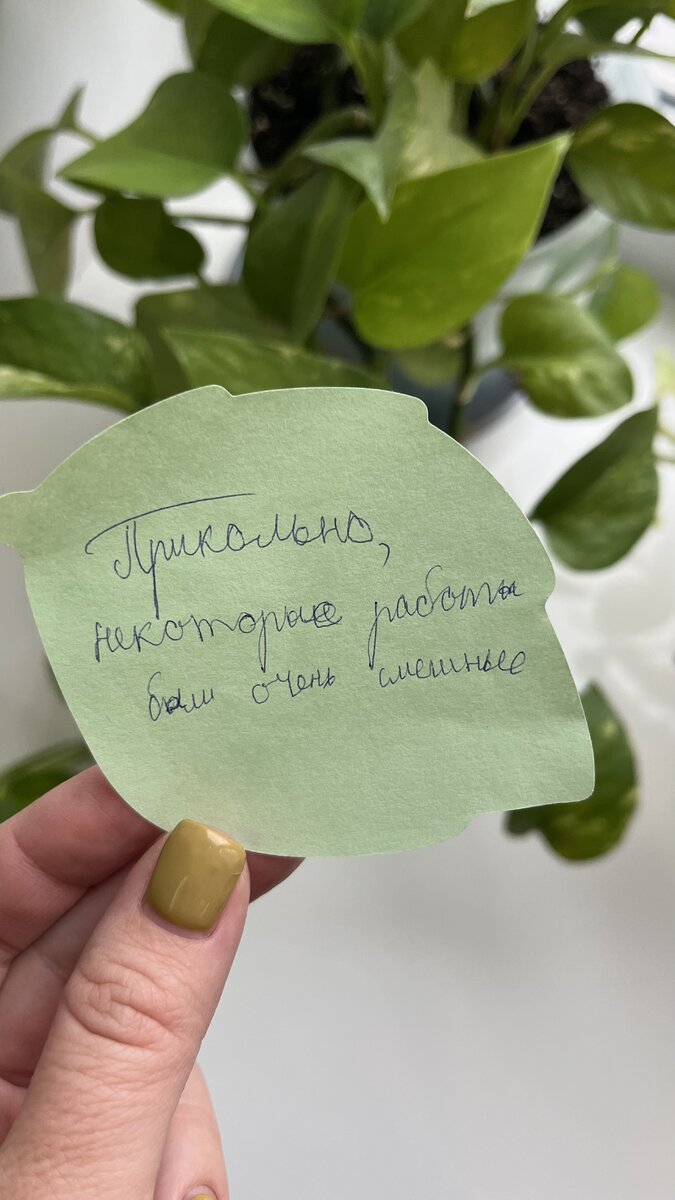 Прикольно,
некоторые работы
были очень смешные